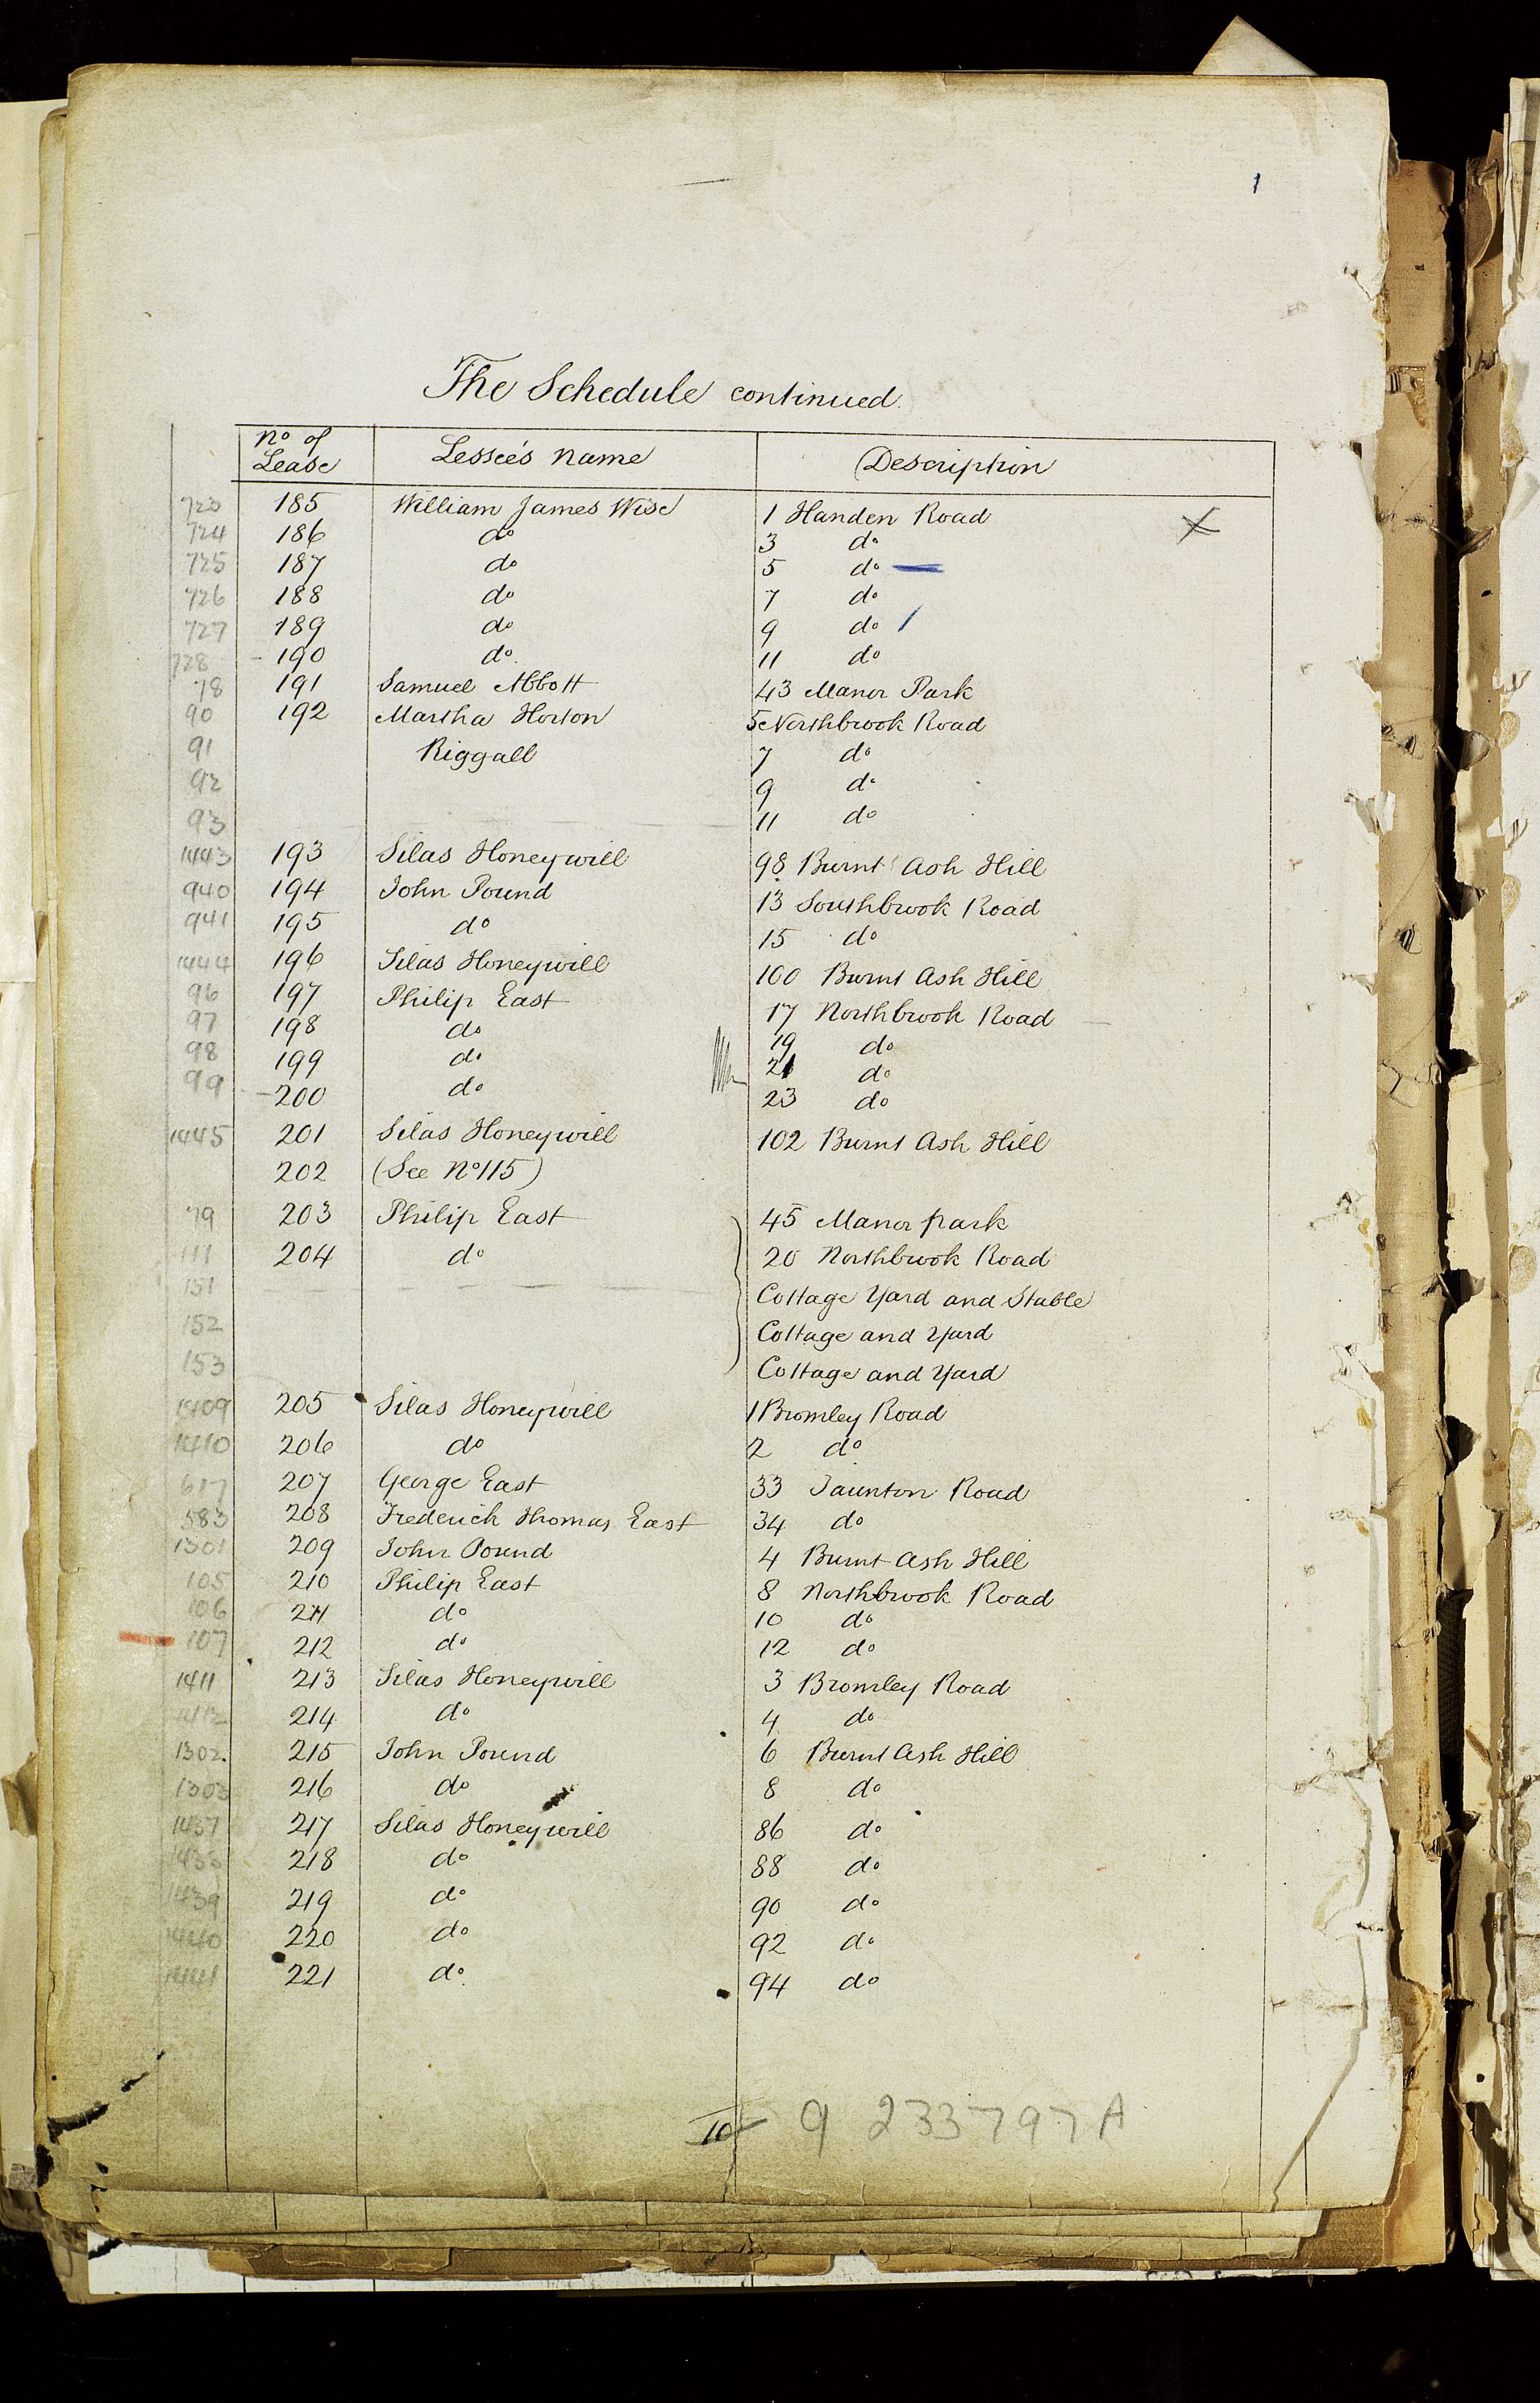 1
The Schedule continued.
No of Lease Lessee's Name Description
723 185 William James Wise 1 Handen Road
724 186 do 3 do
725 187 do 5 do
726 188 do 7 do
727 189 do 9 do
728 190 do 11 do
78 191 Samuel Abbott 43 Manor Park
90 192 Martha Horton 5 Northbrook Road
91 Riggall 7 do
92 9 do
93 11 do
1443 193 Silas Honeywill 98 Burnt Ash Hill
940 194 John Pound 13 Southbrook Road
941 195 do 15 do
1444 196 Silas Honeywill 100 Burnt Ash Hill
96 197 Philip East 17 Northbrook Road
97 198 do 19 do
98 199 do 21 do
99 200 do 23 do
1445 201 Silas Honeywill 102 Burnt Ash Hill
202 (See No 115)
79 203 Philip East 45 Manor park
111 204 do 20 Northbrook Road
151 Cottage Yard and Stable
152 Cottage and Yard
153 Cottage and Yard
1409 205 Silas Honeywill 1 Bromley Road
1410 206 do 2 do
617 207 George East 33 Taunton Road
583 208 Frederick Thomas East 34 do
1301 209 John Pound 4 Burnt Ash Hill
105 210 Philip East 8 Northbrook Road
106 211 do 10 do
107 212 do 12 do
1411 213 Silas Honeywill 3 Bromley Road
1412 214 do 4 do
1302 215 John Pound 6 Burnt Ash Hill
1303 216 do 8 do
1437 217 Silas Honeywill 86 do
1438 218 do 88 do
1439 219 do 90 do
1440 220 do 92 do
1441 221 do 94 do
10 9 233797 A